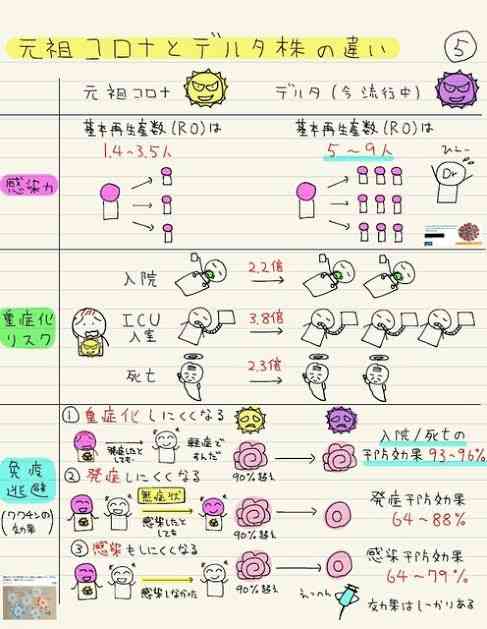 元祖コロナとデルタ株の違い
⑤
元祖コロナ
デルタ(今流行中)
感染力
基本再生産数(R0)は
1.4~3.5人
基本再生産数(R0)は
5~9人
ひぇー
Dr
重症化
リスク
入院
2.2倍
ICU
入室
3.8倍
死亡
2.3倍
免疫
逃避
(ワクチンの
効果)
①重症化しにくくなる
発症したと
しても…
軽症で
すんだ
90%超え
入院/死亡の
予防効果 93~96%
②発症しにくくなる
無症状
感染したと
しても
90%超え
発症予防効果
64~88%
③感染もしにくくなる
感染しなかった
90%超え
感染予防効果
64~79%
えっへん
効果はしっかりある